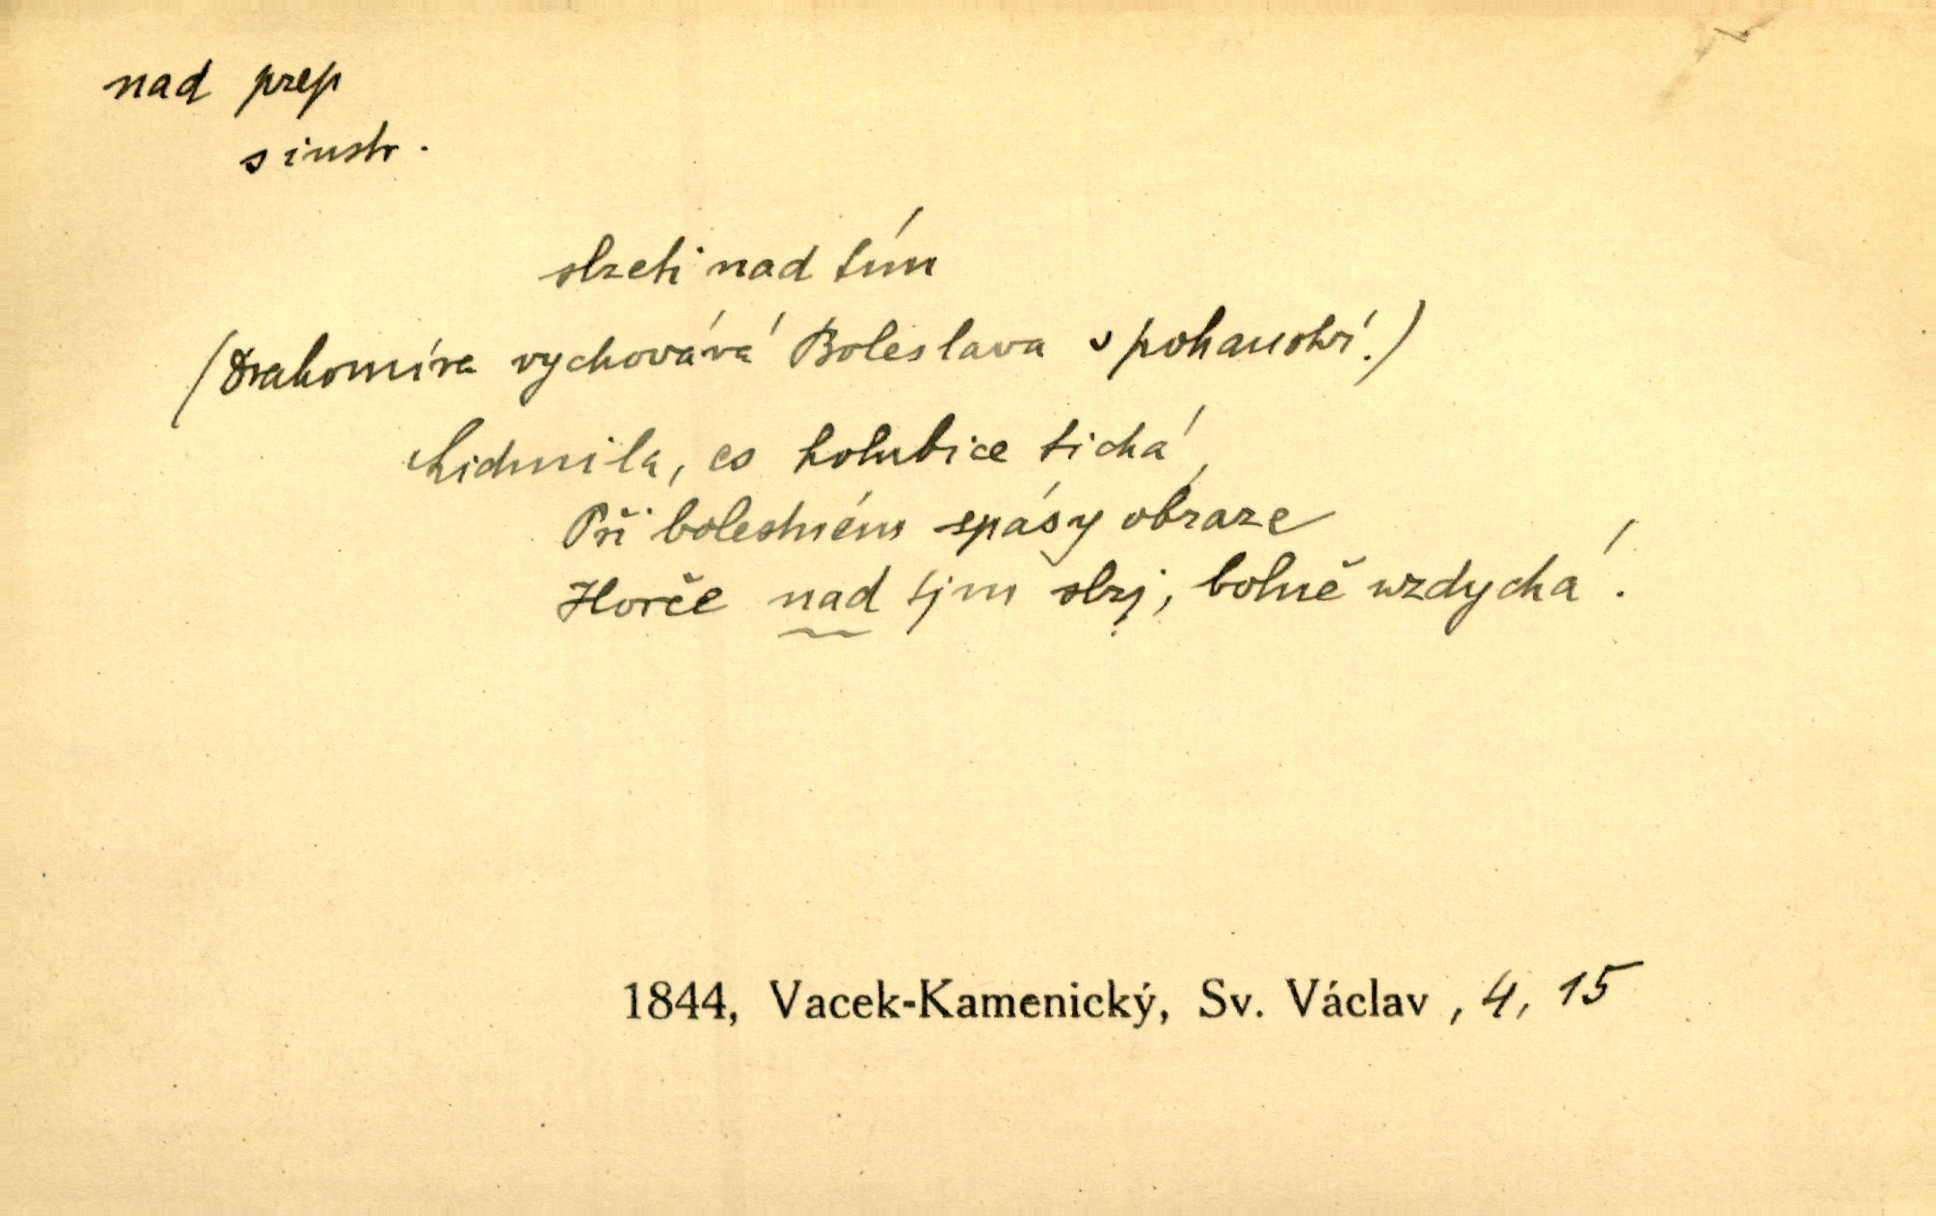 nad prep
s instr.
slzeti nad tím
(Drahomíra vychovává Boleslava v pohanství.)
Lidmila, co holubice tichá,
Při bolestném spásy obraze
Horče nad tjm slzj, bolně wzdychá.
1844, Vacek-Kamenický, Sv. Václav, 4, 15